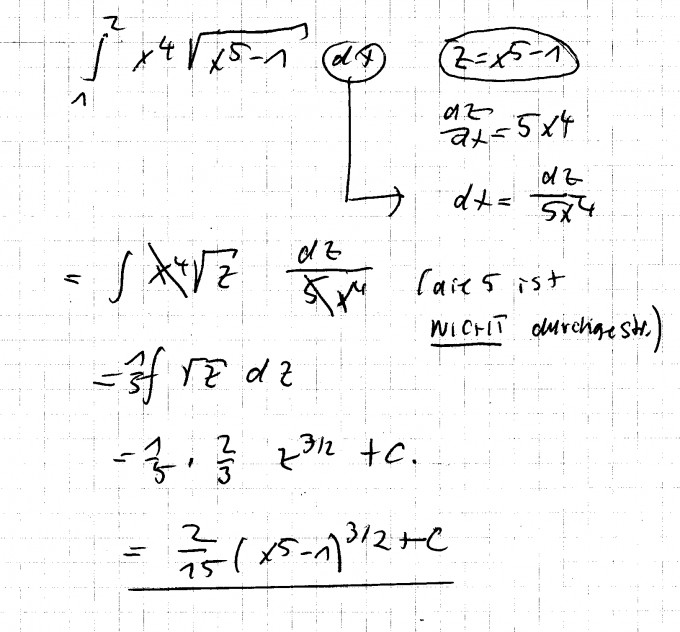 ∫₁² x⁴ √(x⁵-1) dx z = x⁵-1
dz/dx = 5x⁴
dx = dz/5x⁴
= ∫ x⁴ √z dz/5x⁴ (die 5 ist
NICHT durchgestr.)
= 1/5 ∫ √z dz
= 1/5 · 2/3 z^3/2 + C.
= 2/15 (x⁵-1)^3/2 + C